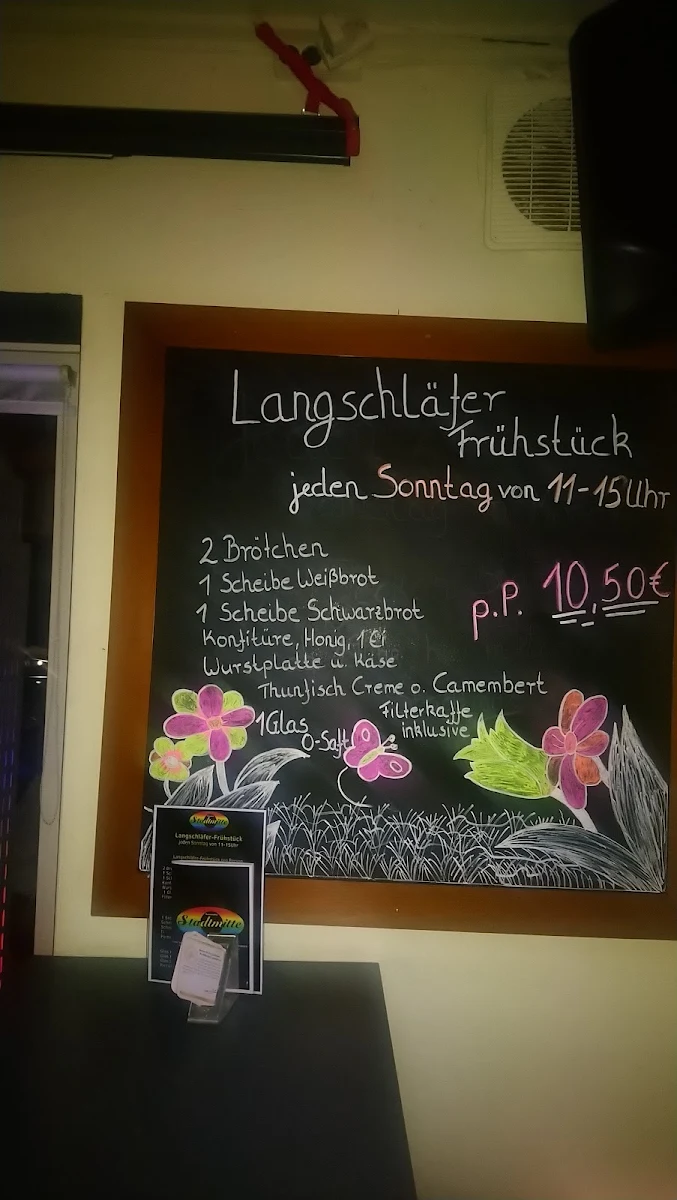 Langschläfer
Frühstück
jeden Sonntag von 11-15 Uhr
2 Brötchen
1 Scheibe Weißbrot
1 Scheibe Schwarzbrot
Konfitüre, Honig, 1 Ei
Wurstplatte u. Käse
Thunfisch Creme o. Camembert
p.P. 10,50€
1 Glas
O-Saft
Filterkaffe
inklusive
Stadtmitte
Langschläfer-Frühstück
jeden Sonntag von 11-15Uhr
Stadtmitte